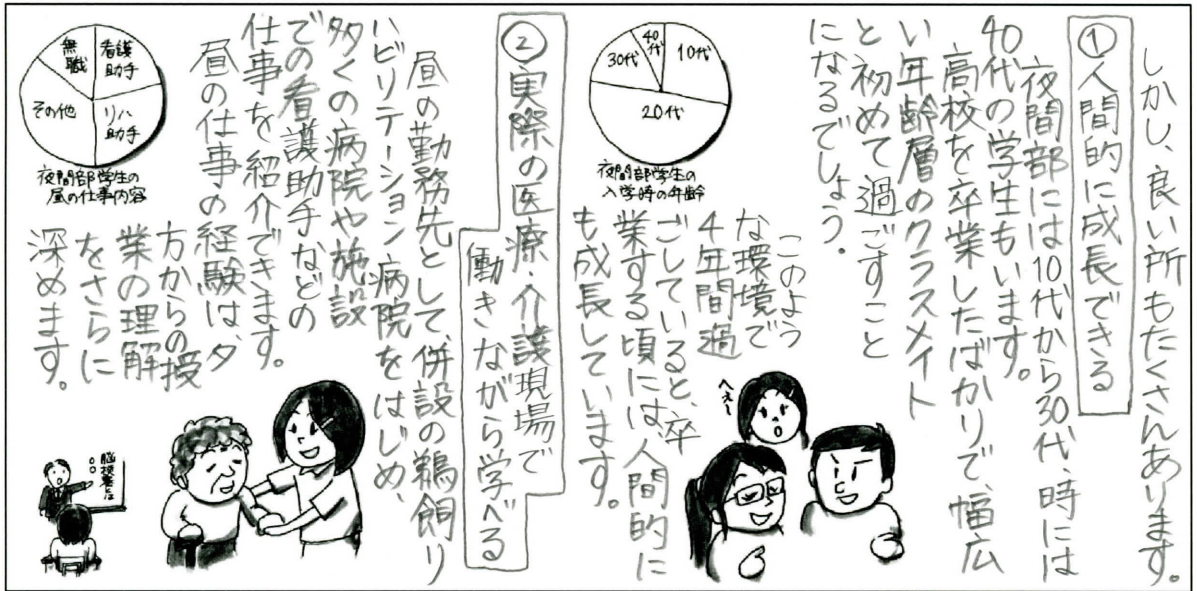 しかし、良い所もたくさんあります。
①人間的に成長できる
夜間部には10代から30代、時には
40代の学生もいます。
高校を卒業したばかりで、幅広
い年齢層のクラスメイト
と初めて過ごすこと
になるでしょう。
10代
20代
30代
40代
夜間部学生の
入学時の年齢
このよう
な環境で
4年間過
ごしていると、卒
業する頃には人間的に
も成長しています。
へぇ〜
②実際の医療・介護現場で
働きながら学べる
昼の勤務先として、併設の鵜飼リ
ハビリテーション病院をはじめ、
多くの病院や施設
での看護助手などの
仕事を紹介できます。
昼の仕事の経験は、夕
方からの授
業の理解
をさらに
深めます。
看護
助手
リハ
助手
その他
無職
夜間部学生の
昼の仕事内容
脳梗塞とは